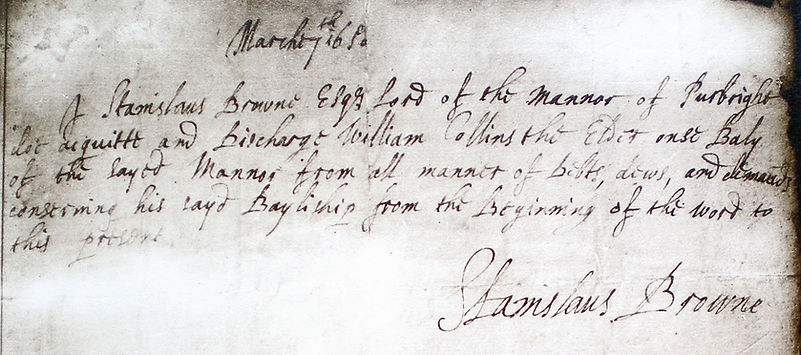 Marche 7th 1650
I Stanislaus Browne Esqr Lord of the Mannor of Purbright
doe acquitte and Discharge William Collins the Elder onse Baly
of the sayed Mannor from all manner of Debts, dews, and demands
conserning his sayd Bayliship from the Beginning of the word to
this present
Stanislaus Browne